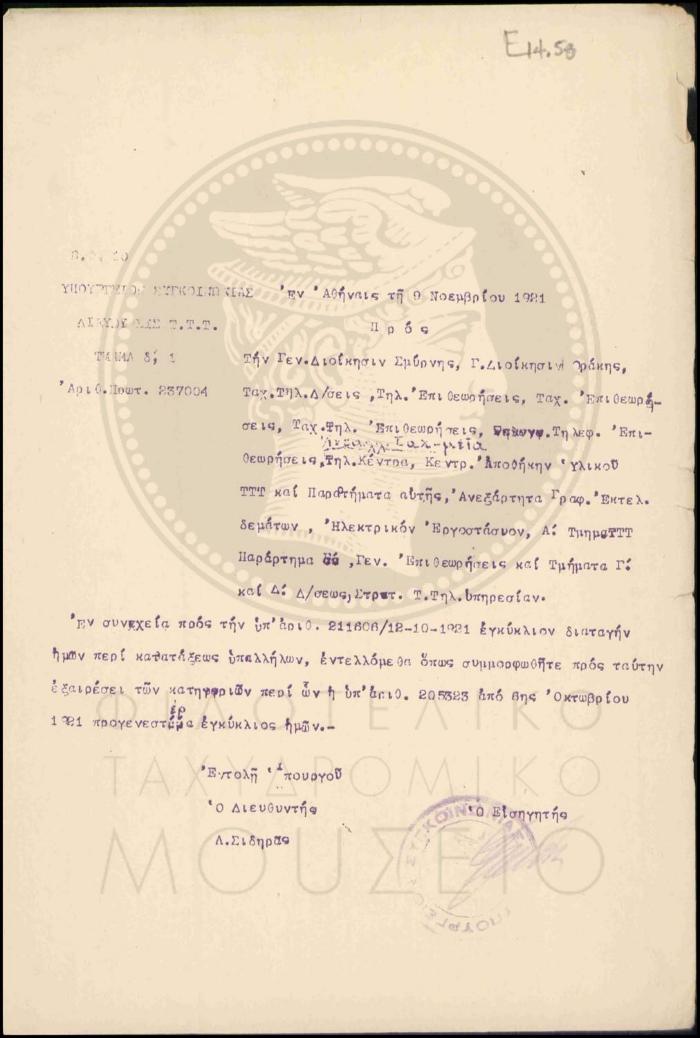 Ε14.58
Β.Σ. 20
ΥΠΟΥΡΓΕΙΟΝ ΣΥΓΚΟΙΝΩΝΙΑΣ Ἐν Ἀθήναις τῇ 9 Νοεμβρίου 1921
ΔΙΕΥΘΥΝΣΙΣ Τ.Τ.Τ. Πρός
ΤΜΗΜΑ δ', 1 Τήν Γεν.Διοίκησιν Σμύρνης, Γ.Διοίκησιν Θράκης,
Ἀριθ.Πρωτ. 237004 Ταχ.Τηλ.Δ/σεις ,Τηλ.Ἐπιθεωρήσεις, Ταχ. Ἐπιθεωρή-
σεις, Ταχ.Τηλ. Ἐπιθεωρήσεις, Τηλεφ. Ἐπι-
θεωρήσεις,Τηλ.Κέντρα, Κεντρ.Ἀποθήκην Ὑλικοῦ
ΤΤΤ καί Παρατήματα αὐτῆς,Ἀνεξάρτητα Γραφ.Ἐκτελ.
δεμάτων , Ἠλεκτρικόν Ἐργοστάσυον, Α΄ Τμημα ΤΤΤ
Παράρτημα ,Γεν. Ἐπιθεωρήσεις καί Τμήματα Γ΄
καί Δ΄ Δ/σεως,Στρατ. Τ.Τηλ.ὑπηρεσίαν.
Ἐν συνεχείᾳ πρός τήν ὑπ'ἀριθ. 211606/12-10-1921 ἐγκύκλιον διαταγήν
ἡμῶν περί κατατάξεως ὑπαλλήλων, ἐντελλόμεθα ὅπως συμμορφωθῆτε πρός ταύτην
ἐξαιρέσει τῶν κατηγοριῶν περί ὧν ἡ ὑπ'ἀριθ. 205323 ἀπό 6ης Ὀκτωβρίου
1921 προγενεστέρα ἐγκύκλιος ἡμῶν.-
Ἐντολῇ Ὑπουργοῦ
Ὁ Διευθυντής Ὁ Εἰσηγητής
Λ.Σιδηρᾶς
ΥΠΟΥΡΓΕΙΟΝ ΣΥΓΚΟΙΝΩΝΙΑΣ
ΦΙΛΟΤΕΛΙΚΟ
ΤΑΧΥΔΡΟΜΙΚΟ
ΜΟΥΣΕΙΟ